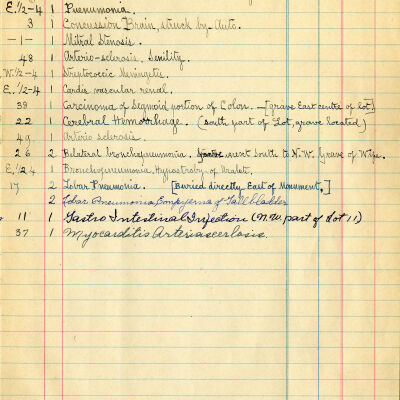 E.1/2-4 1 Pneumonia.
3 1 Concussion Brain, struck by Auto.
-1- 1 Mitral Stenosis.
48 1 Arterio-sclerosis, Senility.
W.1/2-4 1 Streptococcic Meningitis.
E.1/2-4 1 Cardio vascular renal.
39 1 Carcinoma of Segmoid portion of Colon. - [grave East centre of lot]
22 1 Cerebral Hemorrhage. (south part of Lot, grave located)
49 1 Arterio sclerosis.
26 2 Bilateral bronchopneumonia. next South to N.W. Grave of Wife.
E.1/2 4 1 Bronchopneumonia,
17 2 Lobar Pneumonia. [Buried directly East of Monument.]
2 Lobar Pneumonia Empyema of Gallbladder
11 1 Gastro Intestinal Injection (N.W. part of Lot 11)
37 1 Myocarditis Arteriascerlosis.